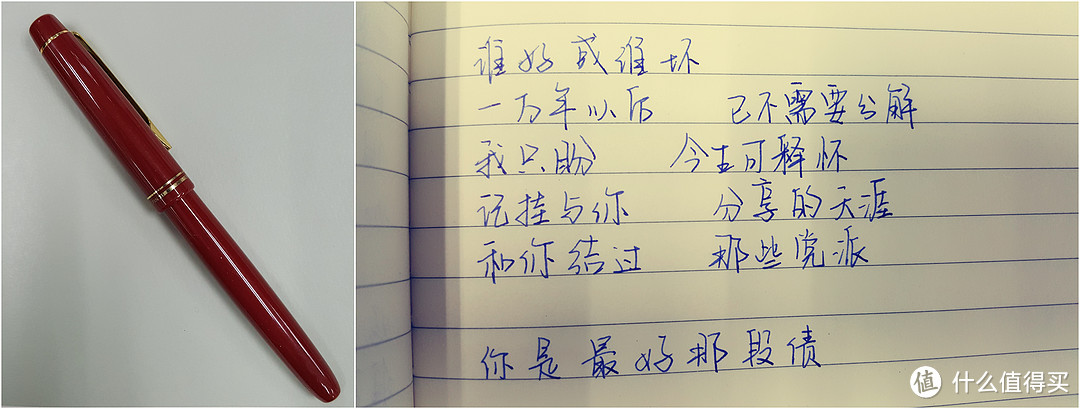 谁好或谁坏
一万年以后 已不需要分解
我只盼 今生可释怀
记挂与你 分享的天涯
和你结过 那些党派
你是最好那段债
值 什么值得买